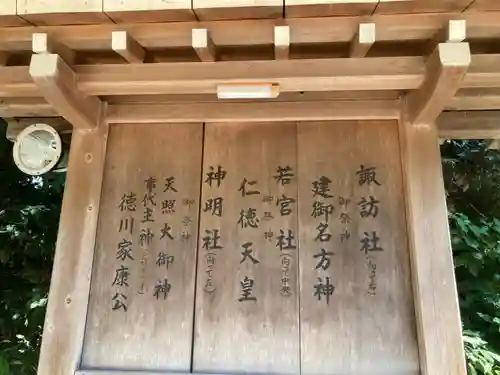 諏訪社（向って右）
御祭神
建御名方神
若宮社（向って中央）
御祭神
仁徳天皇
神明社（向って左）
御祭神
天照大御神
事代主神
徳川家康公